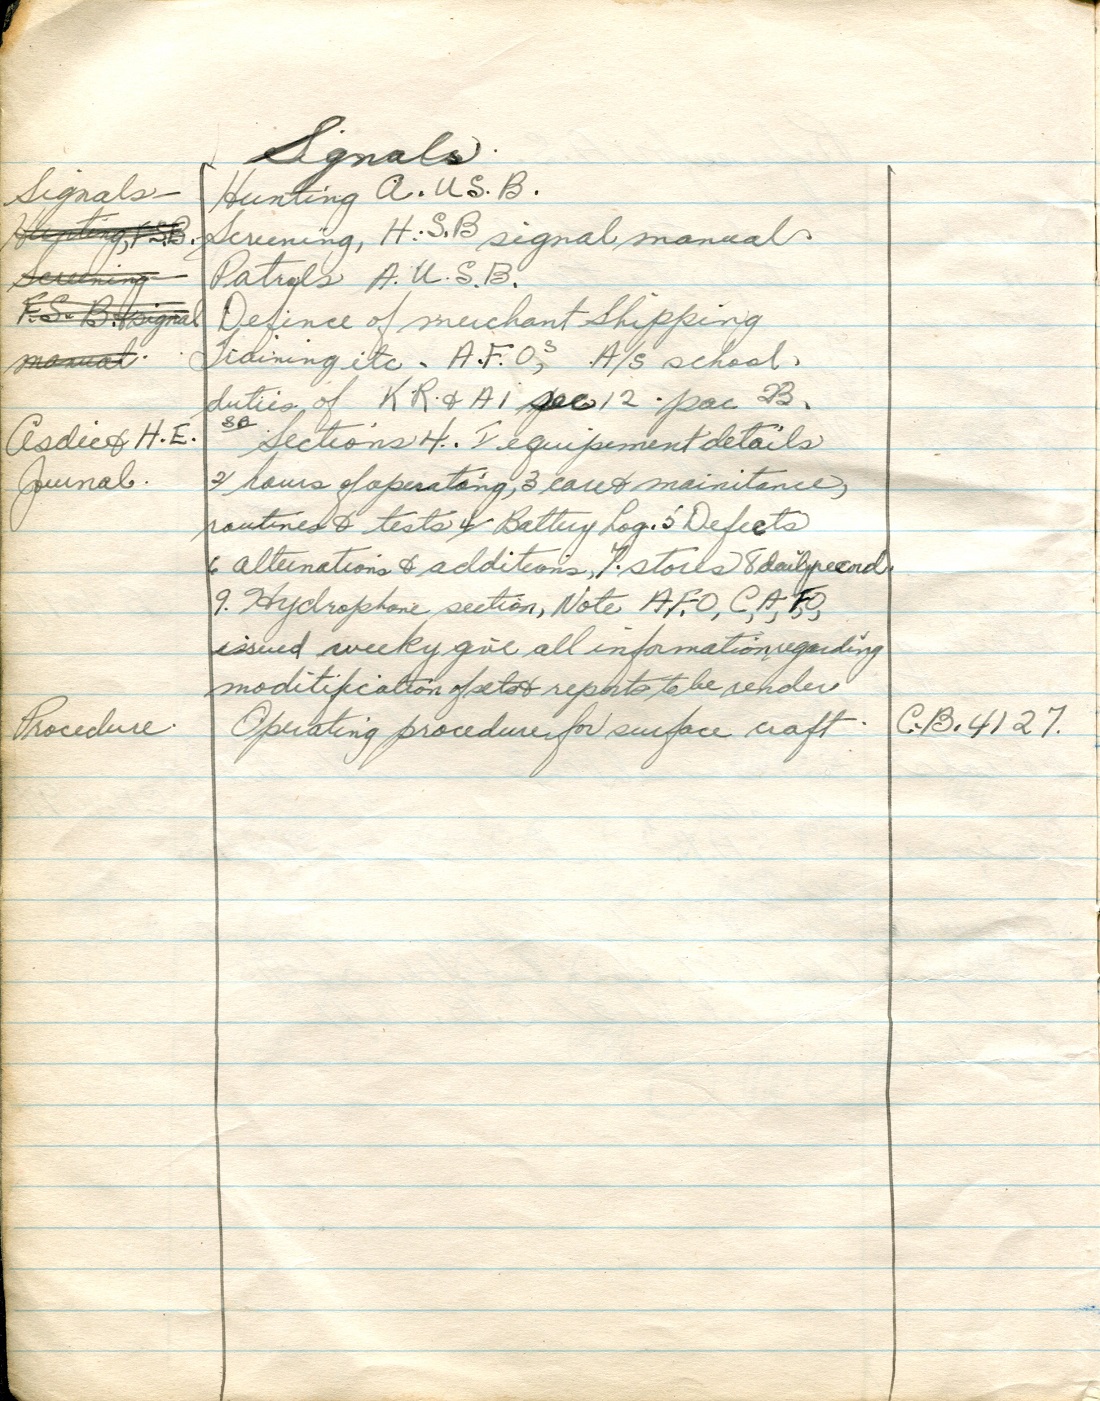 Signals.
Signals— Hunting A. U S. B.
Hunting, F.S.B. Screening, H.S.B signal manual.
Screening— Patrols A. U. S. B.
F.S. B. & signal Defince of merchant Shipping
manual. Training etc. A.F.O,s A/s school.
duties of K R. & A I sec 12. par B.
Asdic & H.E. Sections 4. 1 equipement details
Journal. 2 hours of operating, 3 care & mainitance,
routines & tests 4 Battery Log. 5 Defects
6 alternations & additions, 7. stores 8 daily record.
9. Hydrophone section, Note A.F.O, C,A,F,O,
issued weeky give all information regarding
moditification of sets & reports to be render
Procedure. Operating procedure for surface craft. C.B. 4127.